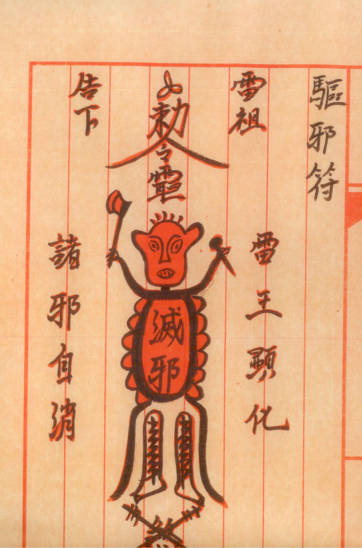 驅邪符
雷祖
雷王顯化
勅令
靈
滅邪
告下
諸邪自消